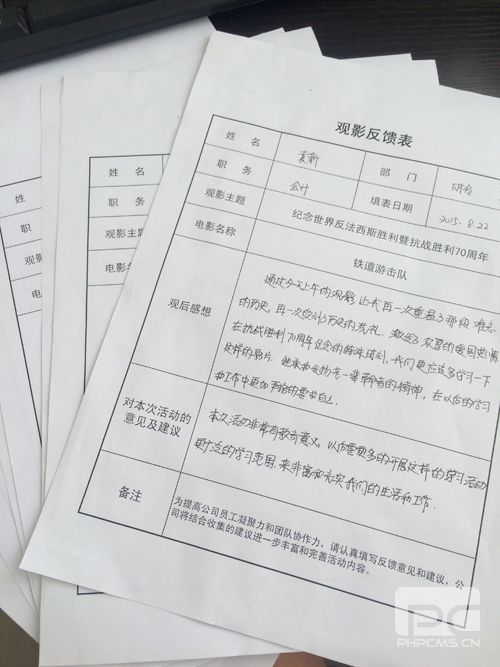 观影反馈表
姓 名 麦新 部 门 研检
职 务 会计 填表日期 2015.8.22
观影主题 纪念世界反法西斯胜利暨抗战胜利70周年
电影名称 铁道游击队
观后感想
通过今天上午的观影,让我再一次重温了那段难忘
的历史,再一次受到了历史的洗礼,激发了浓厚的爱国热情
在抗战胜利70周年纪念的特殊时刻,我们更应该多学习一下
这样的影片,继承和发扬老一辈革命者的精神,在以后的学习
和工作中更加严格的要求自己.
对本次活动的
意见及建议
本次活动非常有教育意义,以后要更多的开展这样的学习活动
更广泛的学习范围,来丰富和充实我们的生活和工作.
备注
为提高公司员工凝聚力和团队协作力,请认真填写反馈意见和建议,公
司将结合收集的建议进一步丰富和完善活动内容。
姓 名
职 务
观影主题
电影名称
姓
职
观影
电影
PHPCMS.CN